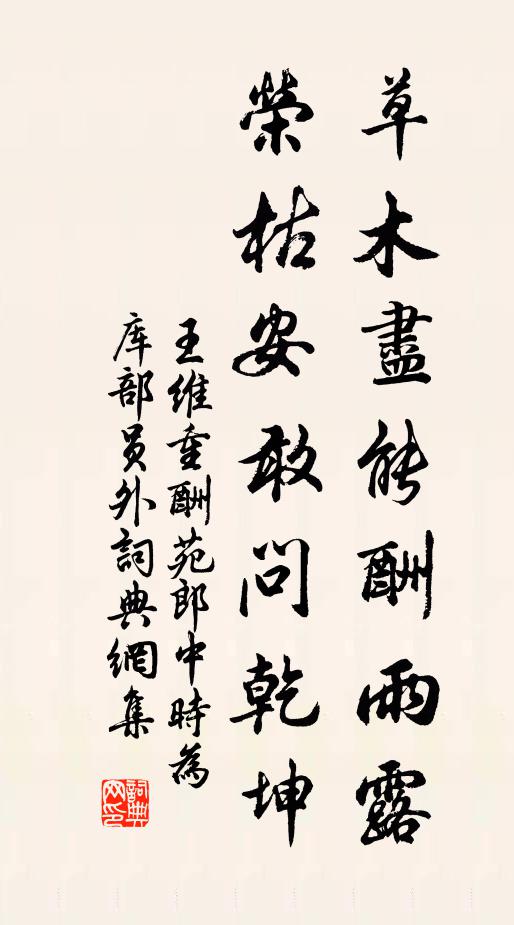 草木盡能酬雨露
榮枯安敢問乾坤
王維重酬苑郎中時為
库部员外詞典網集
詞典网印